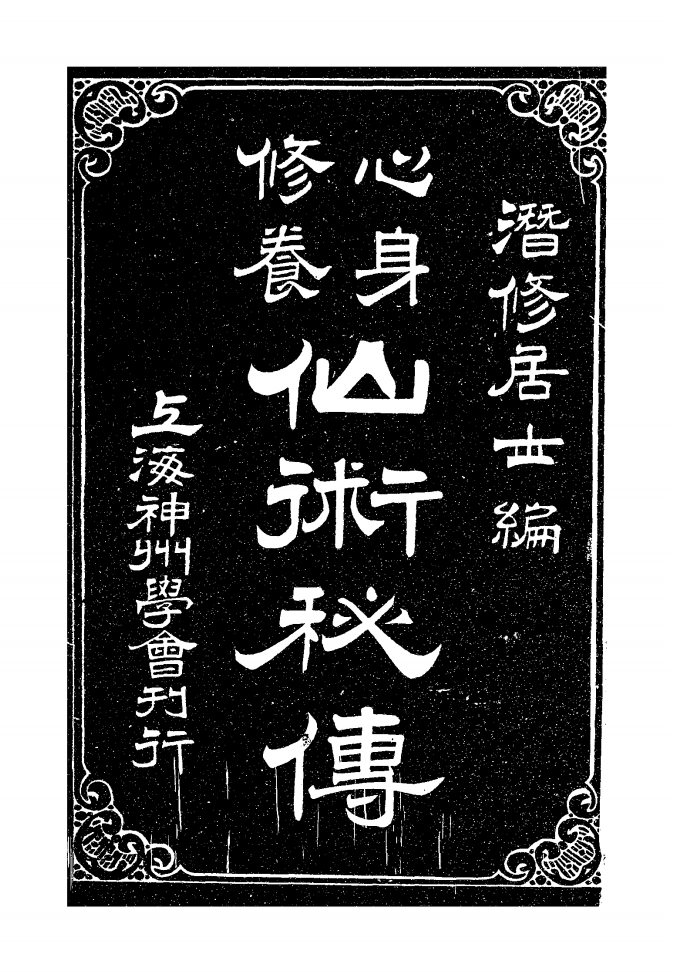 潛修居士編
心身
修養
仙術秘傳
上海神州學會刊行